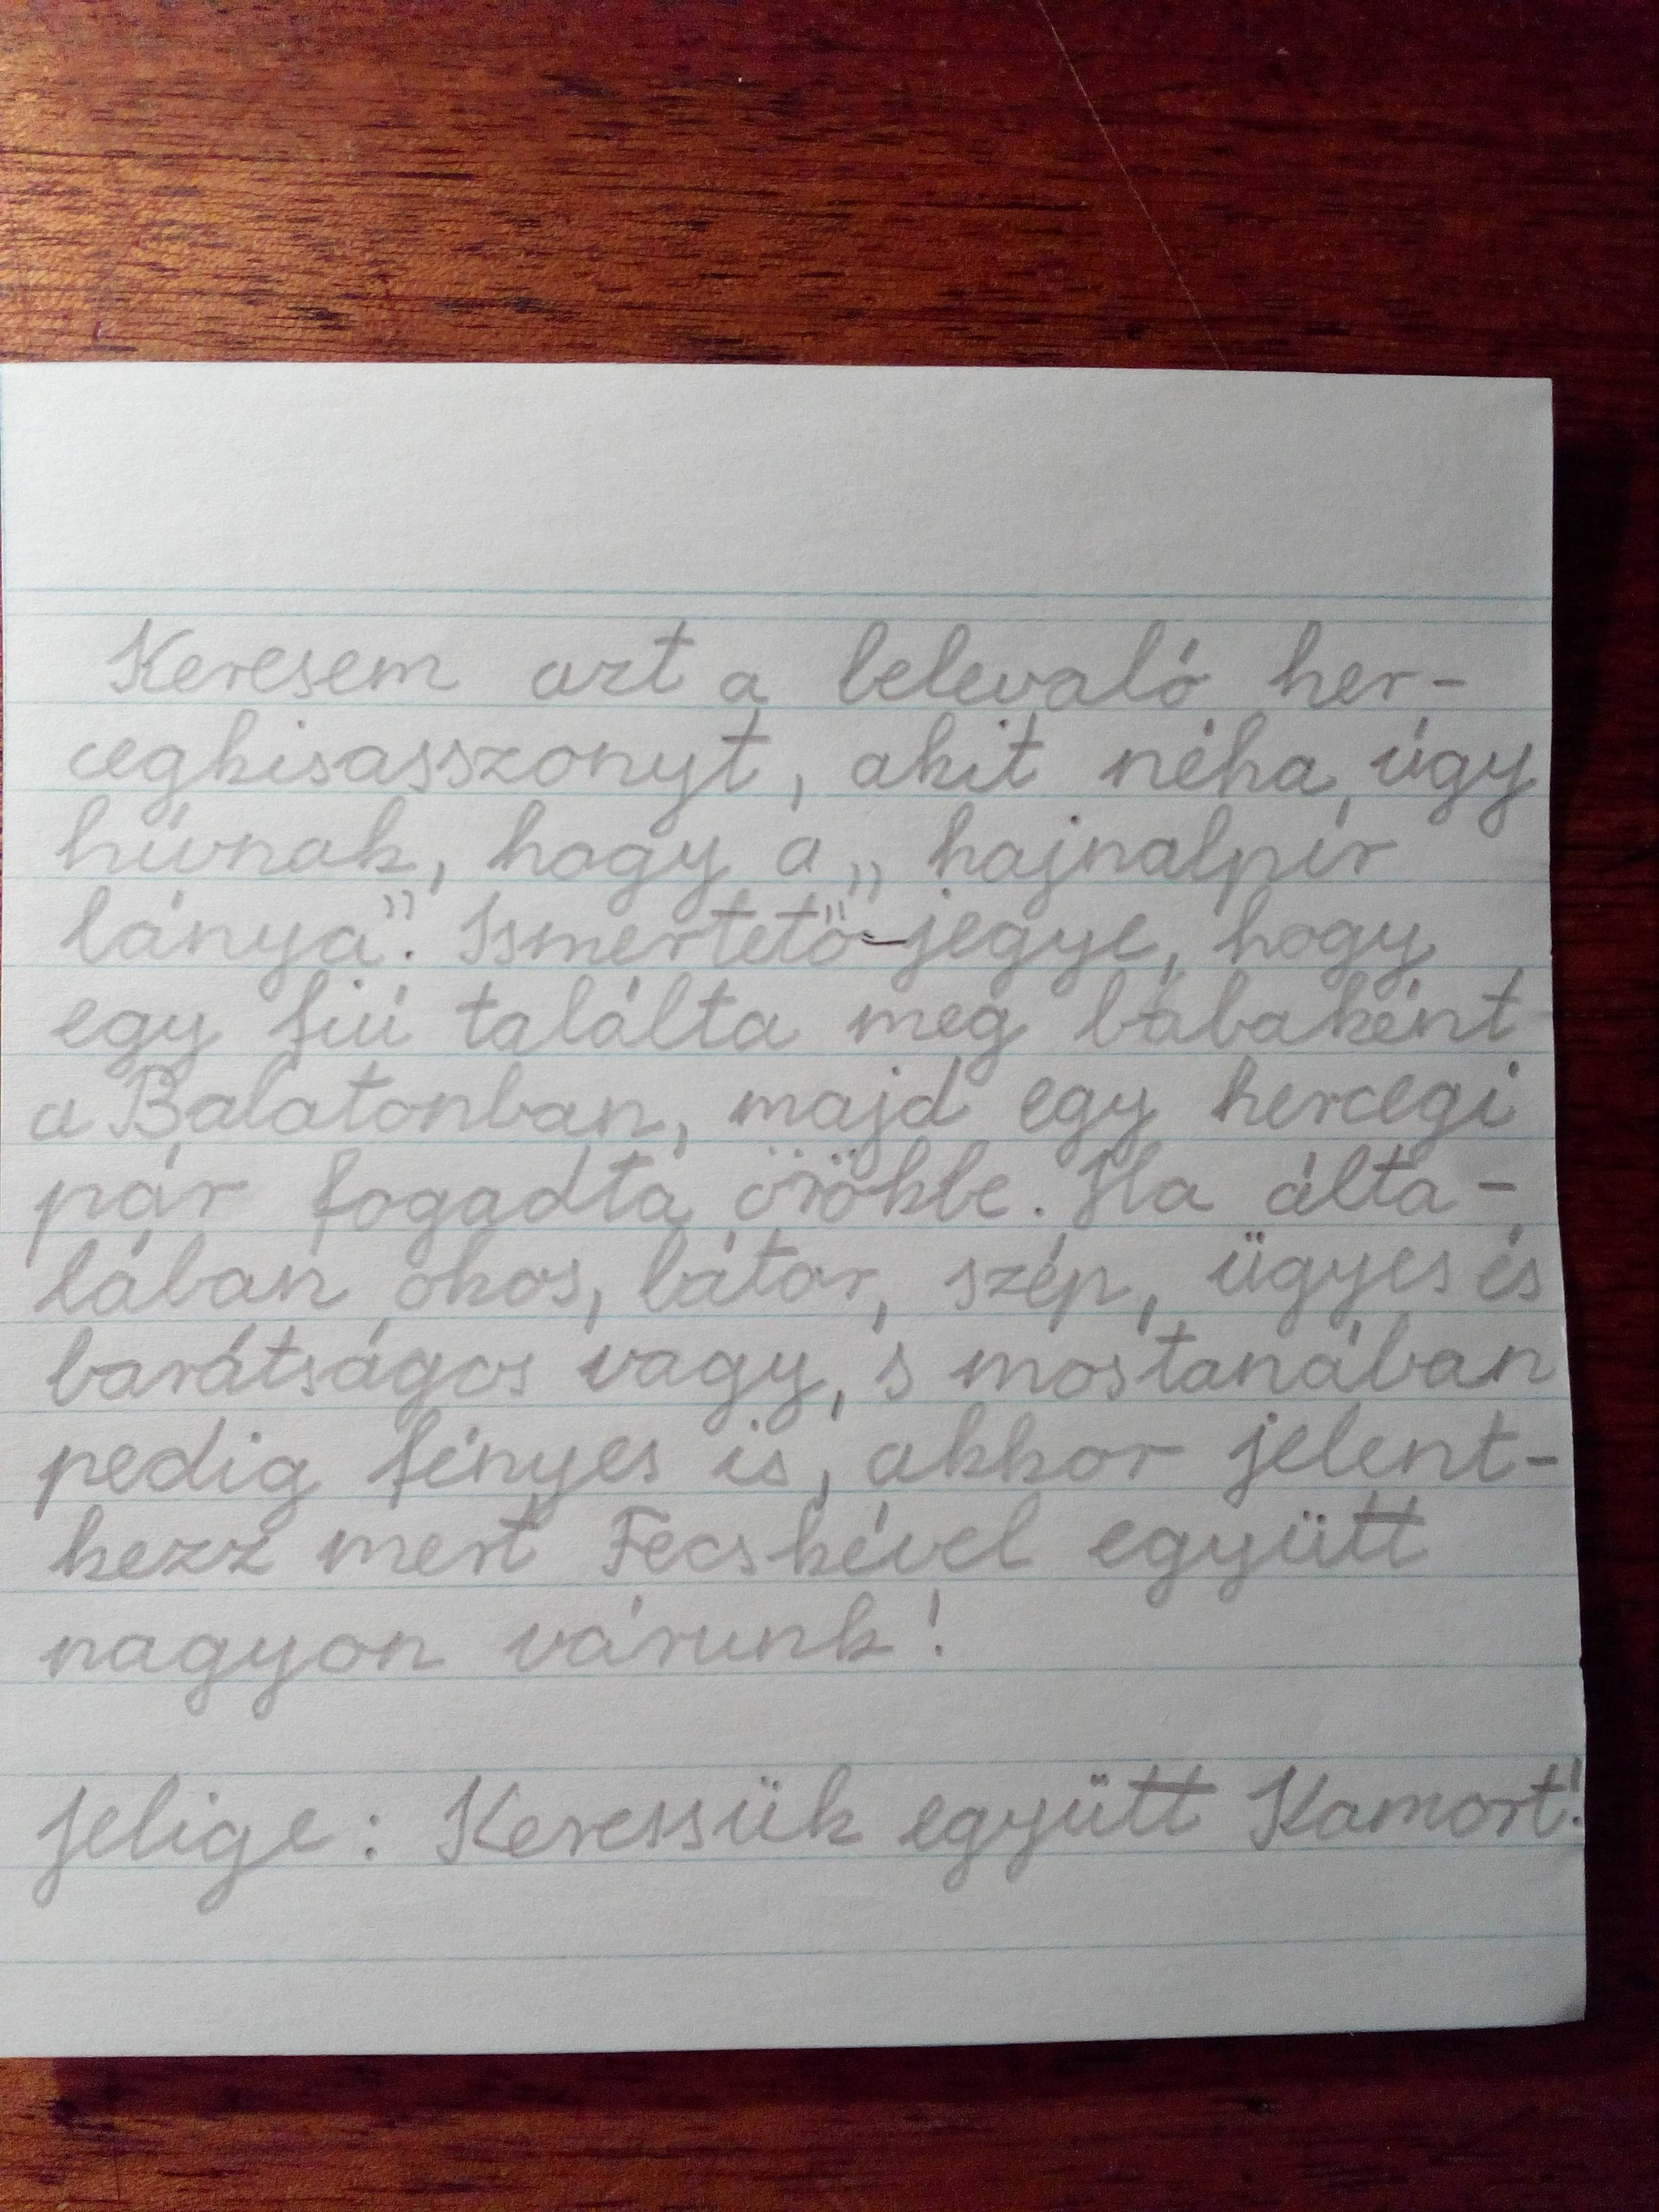 Keresem azt a belevaló her-
cegkisasszonyt, akit néha úgy
hívnak, hogy a „hajnalpír
lánya”. Ismertető-jegye, hogy
egy fiú találta meg bábaként
a Balatonban, majd egy hercegi
pár fogadta örökbe. Ha álta-
lában okos, bátor, szép, ügyes és
barátságos vagy, s mostanában
pedig fényes is, akkor jelent-
kezz mert Fecskével együtt
nagyon várunk!
Jelige: Keressük együtt Kamort!